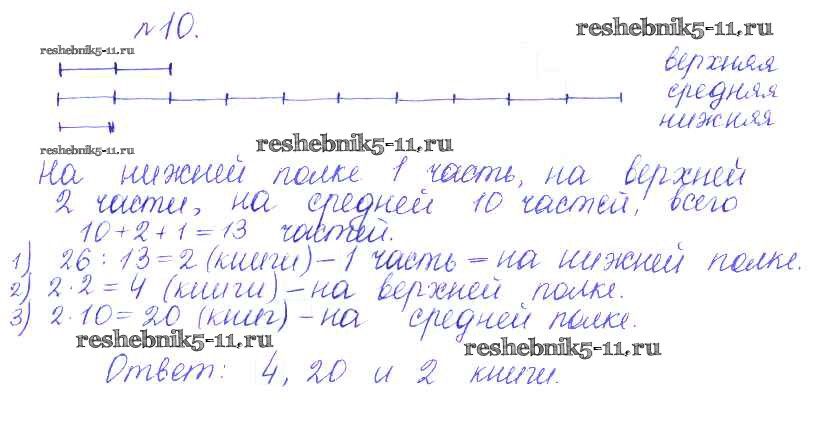 №10.
reshebnik5-11.ru
reshebnik5-11.ru
верхняя
средняя
нижняя
reshebnik5-11.ru
reshebnik5-11.ru
На нижней полке 1 часть, на верхней
2 части, на средней 10 частей, всего
10+2+1=13 частей.
1) 26:13=2 (книги)–1 часть = на нижней полке.
2) 2·2=4 (книги)–на верхней полке.
3) 2·10=20 (книг)–на средней полке.
reshebnik5-11.ru
reshebnik5-11.ru
Ответ: 4, 20 и 2 книги.